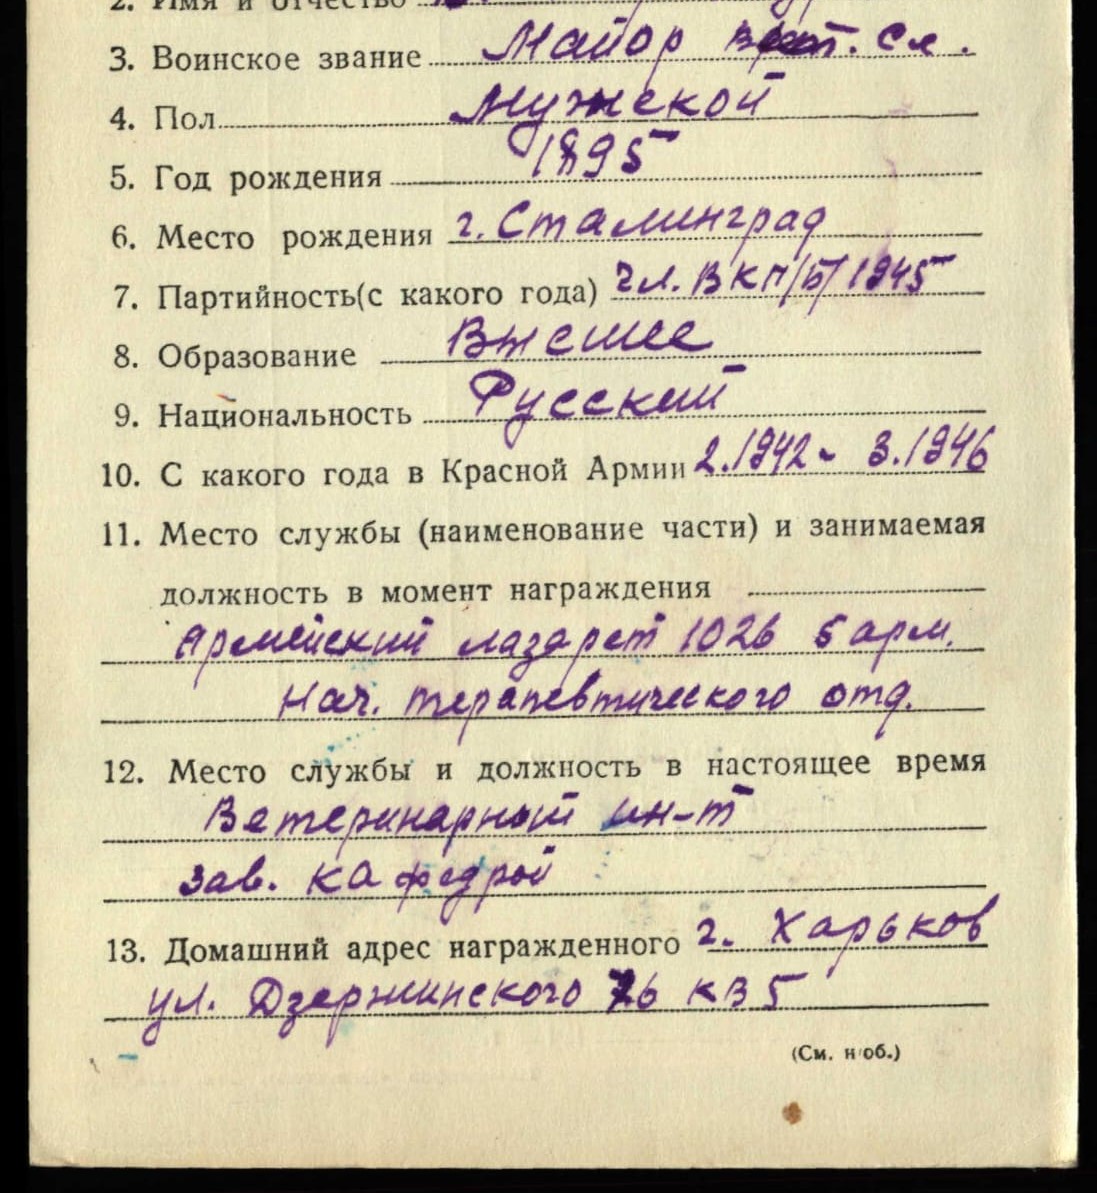 2. Имя и отчество
3. Воинское звание Майор вет. сл.
4. Пол Мужской
5. Год рождения 1895
6. Место рождения г. Сталинград
7. Партийность(с какого года) чл. ВКП/б/ 1945
8. Образование Высшее
9. Национальность Русский
10. С какого года в Красной Армии 2.1942 - 3.1946
11. Место службы (наименование части) и занимаемая
должность в момент награждения
Армейский лазарет 1026 5 арм.
Нач. терапевтического отд.
12. Место службы и должность в настоящее время
Ветеринарный ин-т
зав. кафедрой
13. Домашний адрес награжденного г. Харьков
ул. Дзержинского 76 кв 5
(См. н об.)